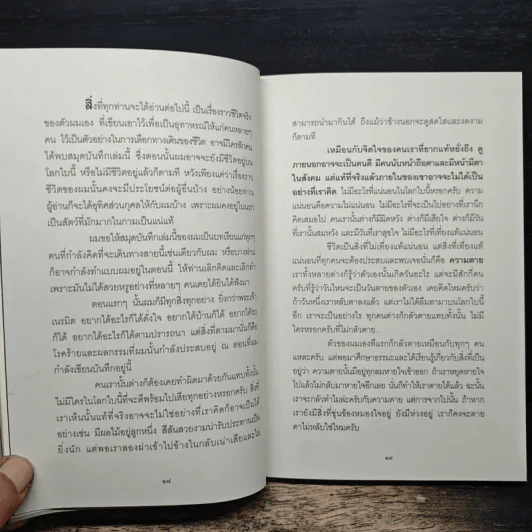 สิ่งที่ทุกท่านจะได้อ่านต่อไปนี้ เป็นเรื่องราวชีวิตจริง
ของตัวผมเอง ที่เขียนเอาไว้เพื่อเป็นอุทาหรณ์ให้แก่คนหลายๆ
คน ไว้เป็นตัวอย่างในการเลือกทางเดินของชีวิต อาจมีใครสักคน
ได้พบสมุดบันทึกเล่มนี้ ซึ่งตอนนั้นผมอาจจะยังมีชีวิตอยู่บน
โลกใบนี้ หรือไม่มีชีวิตอยู่แล้วก็ตามที หวังเพียงแค่ว่าเรื่องราว
ชีวิตของผมนั้นคงจะมีประโยชน์ต่อผู้อื่นบ้าง อย่างน้อยท่าน
ผู้อ่านก็จะได้อุทิศส่วนกุศลให้กับผมบ้าง เพราะผมคงอยู่ในนรก
เป็นสัตว์ที่มักมากในกามเป็นแน่แท้
ผมขอให้สมุดบันทึกเล่มนี้ของผมเป็นบทเรียนแก่ทุกๆ
คนที่กำลังคิดที่จะเดินทางสายนี้เช่นเดียวกับผม หรือบางท่าน
ก็อาจกำลังทำแบบผมอยู่ในตอนนี้ ให้ท่านเลิกคิดและเลิกทำ
เพราะมันไม่ได้สวยหรูอย่างที่หลายๆ คนเคยได้ยินได้ฟังมา
ตอนแรกๆ นั้นผมก็มีทุกสิ่งทุกอย่าง ยิ่งกว่าพระเจ้า
เนรมิต อยากได้อะไรก็ได้ดั่งใจ อยากได้บ้านก็ได้ อยากได้รถ
ก็ได้ อยากได้อะไรก็ได้ตามปรารถนา แต่สิ่งที่ตามมานั้นก็คือ
โรคร้ายและผลกรรมที่ผมนั้นกำลังประสบอยู่ ณ ตอนที่ผม
กำลังเขียนบันทึกอยู่นี้
คนเรานั้นต่างก็ต้องเคยทำผิดมาด้วยกันแทบทั้งนั้น
ไม่มีใครในโลกใบนี้ที่จะดีพร้อมไปเสียทุกอย่างหรอกครับ สิ่งที่
เราเห็นนั้นแท้ที่จริงอาจจะไม่ใช่อย่างที่เราคิดก็อาจเป็นได้
อย่างเช่น มีผลไม้อยู่ลูกหนึ่ง สีสันสวยงามน่ารับประทานเป็น
ยิ่งนัก แต่พอเราลองผ่าเข้าไปข้างในกลับเน่าเสียและไม่
๑๘
สามารถนำมากินได้ ถึงแม้ว่าข้างนอกจะดูสดใสและงดงาม
ก็ตามที
เหมือนกับจิตใจของคนเราที่ยากแท้หยั่งถึง ดู
ภายนอกอาจจะเป็นคนดี มีคนนับหน้าถือตาและมีหน้ามีตา
ในสังคม แต่แท้ที่จริงแล้วภายในของเขาอาจจะไม่ได้เป็น
อย่างที่เราคิด ไม่มีอะไรที่แน่นอนในโลกใบนี้หรอกครับ ความ
แน่นอนคือความไม่แน่นอน ไม่มีอะไรที่จะเป็นอย่างที่เรานึก
คิดเสมอไป คนเรานั้นต่างก็มีผิดหวัง ต่างก็มีเสียใจ ต่างก็มีวัน
ที่เรานั้นสมหวัง และมีวันที่เราสุขใจ ไม่มีอะไรที่เที่ยงแท้แน่นอน
ชีวิตเป็นสิ่งที่ไม่เที่ยงแท้แน่นอน แต่สิ่งที่เที่ยงแท้
แน่นอนที่ทุกคนจะต้องประสบและพบเจอนั่นก็คือ ความตาย
เราทั้งหลายต่างก็รู้ว่าตัวเองนั้นเกิดวันอะไร แต่จะมีสักกี่คน
ครับที่รู้ว่าวันไหนจะเป็นวันตายของตัวเอง เคยคิดไหมครับว่า
ถ้าวันหนึ่งเราหลับตาลงแล้ว แต่เราไม่ได้ลืมตามาบนโลกใบนี้
อีก เราจะเป็นอย่างไร ทุกคนต่างก็กลัวตายแทบทั้งนั้น ไม่มี
ใครหรอกครับที่ไม่กลัวตาย...
ตัวของผมเองที่แรกก็กลัวตายเหมือนกับทุกๆ คน
แหละครับ แต่พอมาศึกษาธรรมะและได้เรียนรู้เกี่ยวกับสิ่งที่เป็น
อยู่ว่า ความตายนั้นมีอยู่ทุกลมหายใจเข้าออก ถ้าเราหยุดหายใจ
ไปแล้วไม่กลับมาหายใจอีกเลย นั่นก็ทำให้เราตายได้แล้ว ฉะนั้น
เราจะกลัวทำไมล่ะครับกับความตาย แต่การจากไปนั้น ถ้าหาก
เรายังมีสิ่งที่ขุ่นข้องหมองใจอยู่ ยังมีห่วงอยู่ เราก็คงจะตาย
ตาไม่หลับใช่ไหมครับ
๑๙